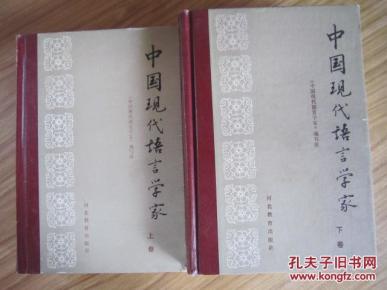 中国现代语言学家
上卷
《中国现代语言学家》编写组
河北教育出版社
中国现代语言学家
下卷
《中国现代语言学家》编写组
河北教育出版社